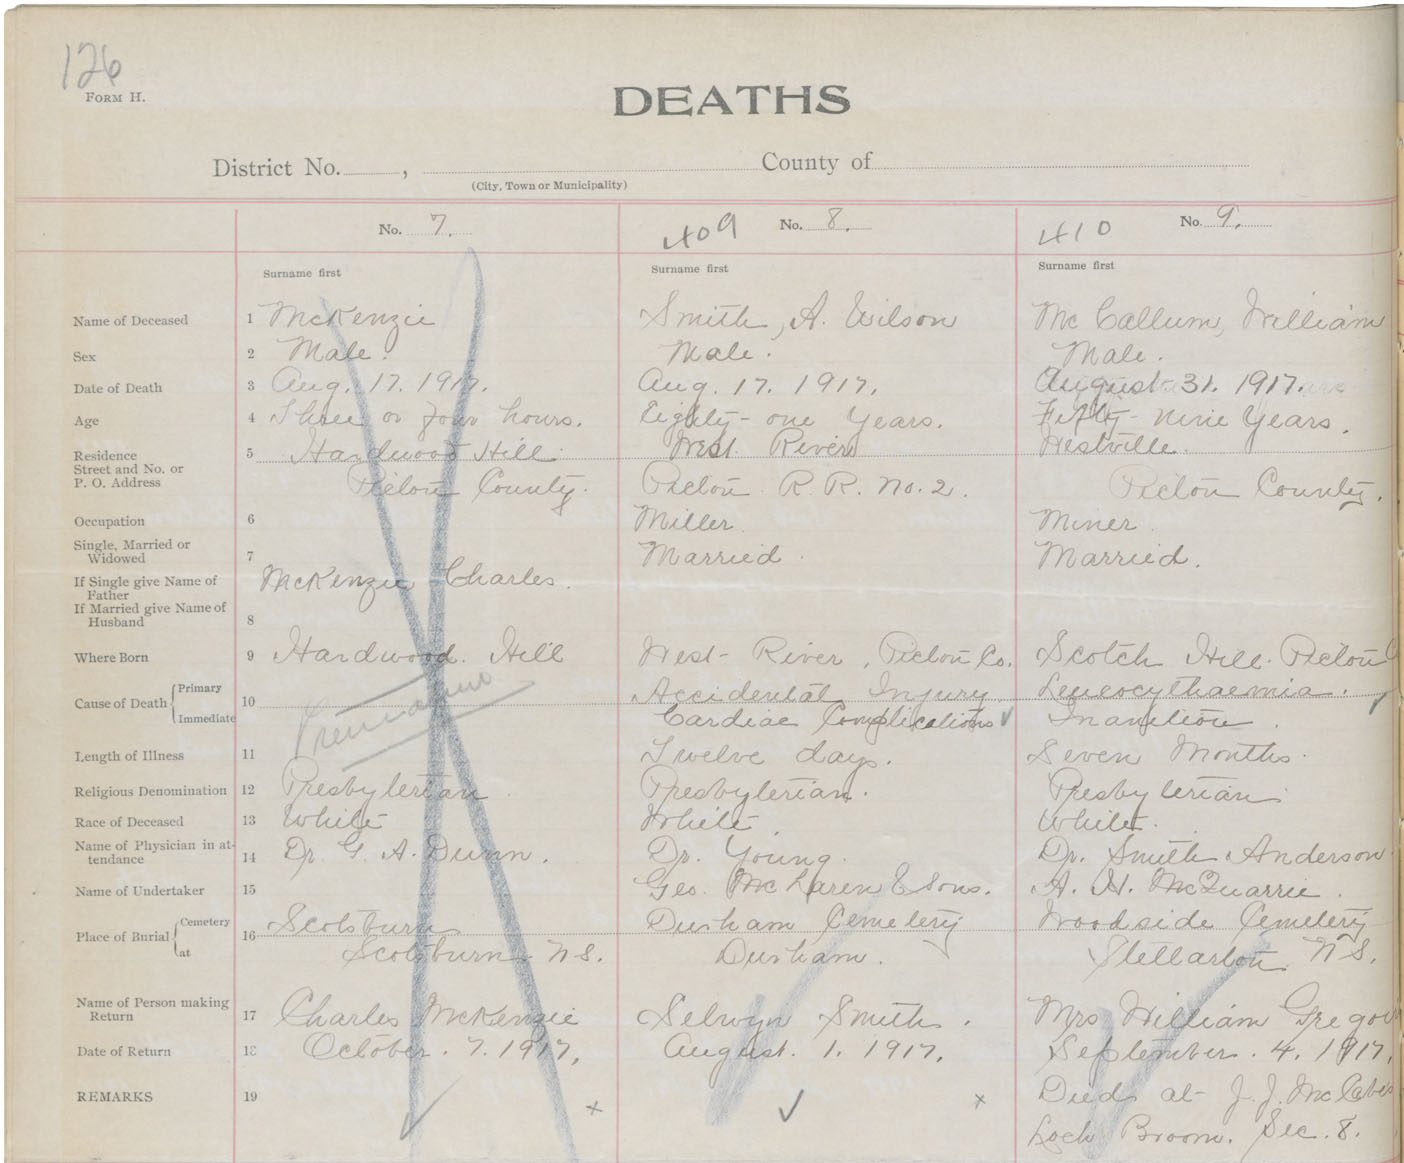 126
FORM H.
DEATHS
District No. , County of
(City, Town or Municipality)
No. 7. 409 No. 8. 410 No. 9.
Surname first Surname first Surname first
Name of Deceased 1 McKenzie Smith, A. Wilson McCallum, William
Sex 2 Male. Male. Male.
Date of Death 3 Aug. 17. 1917. Aug. 17. 1917. August 31. 1917.
Age 4 Three or four hours. Eighty-one Years. Fifty-nine Years.
Residence 5 Hardwood Hill West River Westville.
Street and No. or
P. O. Address Pictou County. Pictou R. R. No. 2. Pictou County.
Occupation 6 Miller Miner
Single, Married or
Widowed 7 Married. Married.
If Single give Name of
Father McKenzie Charles.
If Married give Name of
Husband 8
Where Born 9 Hardwood. Hill West River, Pictou Co. Scotch Hill. Pictou
Cause of Death Primary 10 Premature Accidental Injury Leucocythaemia.
Immediate Cardiac Complications Inanition.
Length of Illness 11 Twelve days. Seven Months.
Religious Denomination 12 Presbyterian Presbyterian. Presbyterian
Race of Deceased 13 White White White.
Name of Physician in at-
tendance 14 Dr. G. A. Dunn. Dr. Young. Dr. Smith Anderson
Name of Undertaker 15 Geo. McLaren & Sons. A. H. McQuarrie.
Place of Burial Cemetery 16 Scotsburn Durham Cemetery Woodside Cemetery
at Scotsburn. N S. Durham. Stellarton N S.
Name of Person making
Return 17 Charles McKenzie Selwyn Smith. Mrs William Gregor
Date of Return 18 October. 7. 1917. August. 1. 1917. September. 4. 1917.
REMARKS 19 x x Died at J. J. McCabes
Loch Broom. Sec. 8.